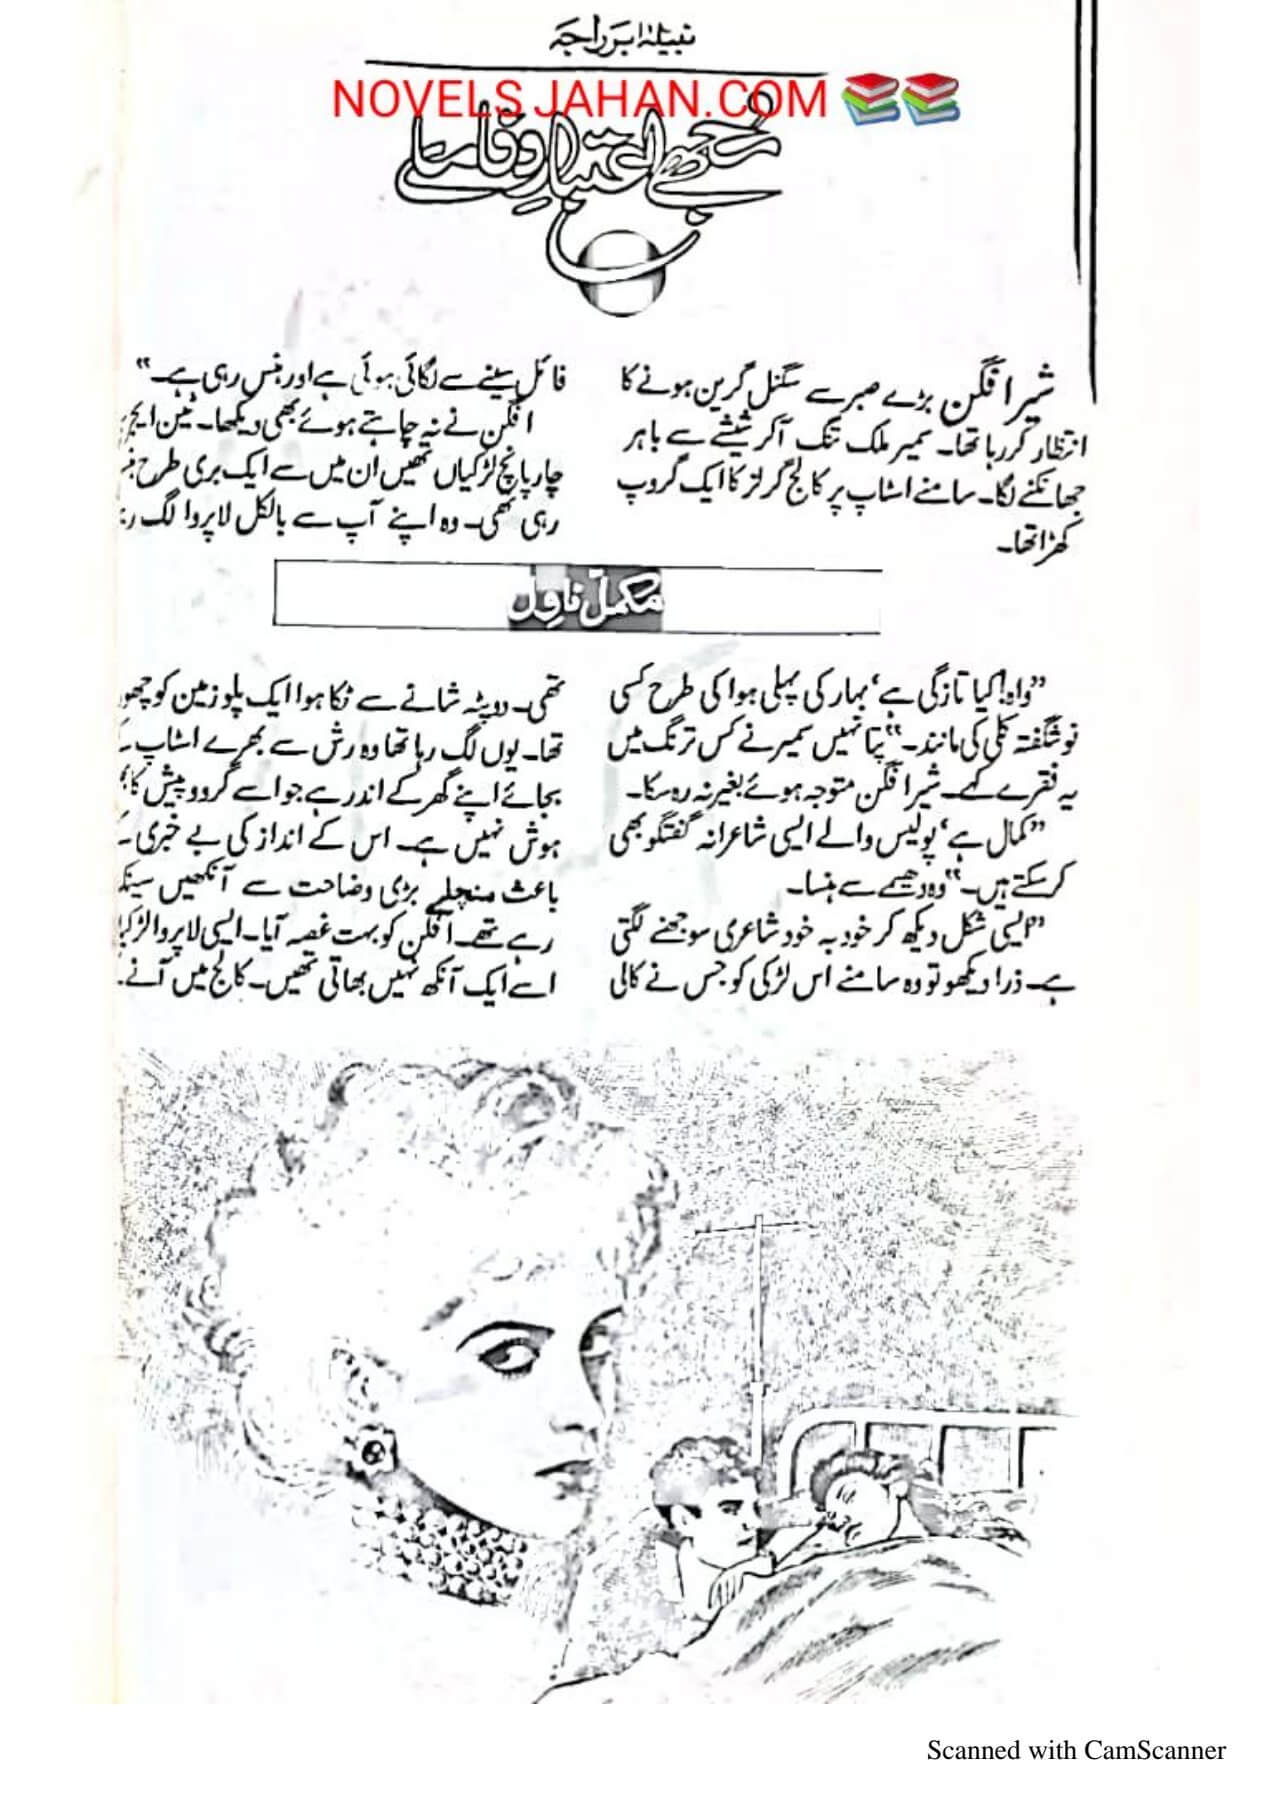 نبیلہ ابر راجہ
NOVELS JAHAN.COM
مجھے اعتبار وفا ملے
شیر افگن بڑے صبر سے سگنل گرین ہونے کا
انتظار کر رہا تھا۔ سمیر ملک تنک آکر شیشے سے باہر
جھانکنے لگا۔ سامنے اسٹاپ پر کالج گرلز کا ایک گروپ
کھڑا تھا۔
مکمل ناول
”واہ! کیا تازگی ہے‘ بہار کی پہلی ہوا کی طرح کسی
نوشگفتہ کلی کی مانند۔“ پتا نہیں سمیر نے کس ترنگ میں
یہ فقرے کہے۔ شیر افگن متوجہ ہوئے بغیر نہ رہ سکا۔
”کمال ہے‘ پولیس والے ایسی شاعرانہ گفتگو بھی
کر سکتے ہیں۔“ وہ دھیمے سے ہنسا۔
”ایسی شکل دیکھ کر خود بہ خود شاعری سوجھنے لگتی
ہے۔ ذرا دیکھو تو وہ سامنے اس لڑکی کو جس نے کالی
فائل سینے سے لگائی ہوئی ہے اور ہنس رہی ہے۔“
افگن نے نہ چاہتے ہوئے بھی دیکھا۔ ٹین ایجر
چار پانچ لڑکیاں تھیں ان میں سے ایک بری طرح
رہی تھی۔ وہ اپنے آپ سے بالکل لاپروا لگ
تھی۔ دوپٹہ شانے سے ٹکا ہوا ایک پلو زمین کو چھو
تھا۔ یوں لگ رہا تھا وہ رش سے بھرے اسٹاپ
بجائے اپنے گھر کے اندر ہے جو اسے گردوپیش کا
ہوش نہیں ہے۔ اس کے انداز کی بے خبری
باعث منچلے بڑی وضاحت سے آنکھیں سینک
رہے تھے۔ افگن کو بہت غصہ آیا۔ ایسی لاپروا
اسے ایک آنکھ نہیں بھاتی تھیں۔ کالج میں آنے
Scanned with CamScanner